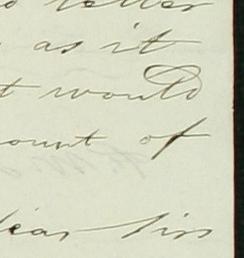 letter
as it
t would
ount of
Dear Sir